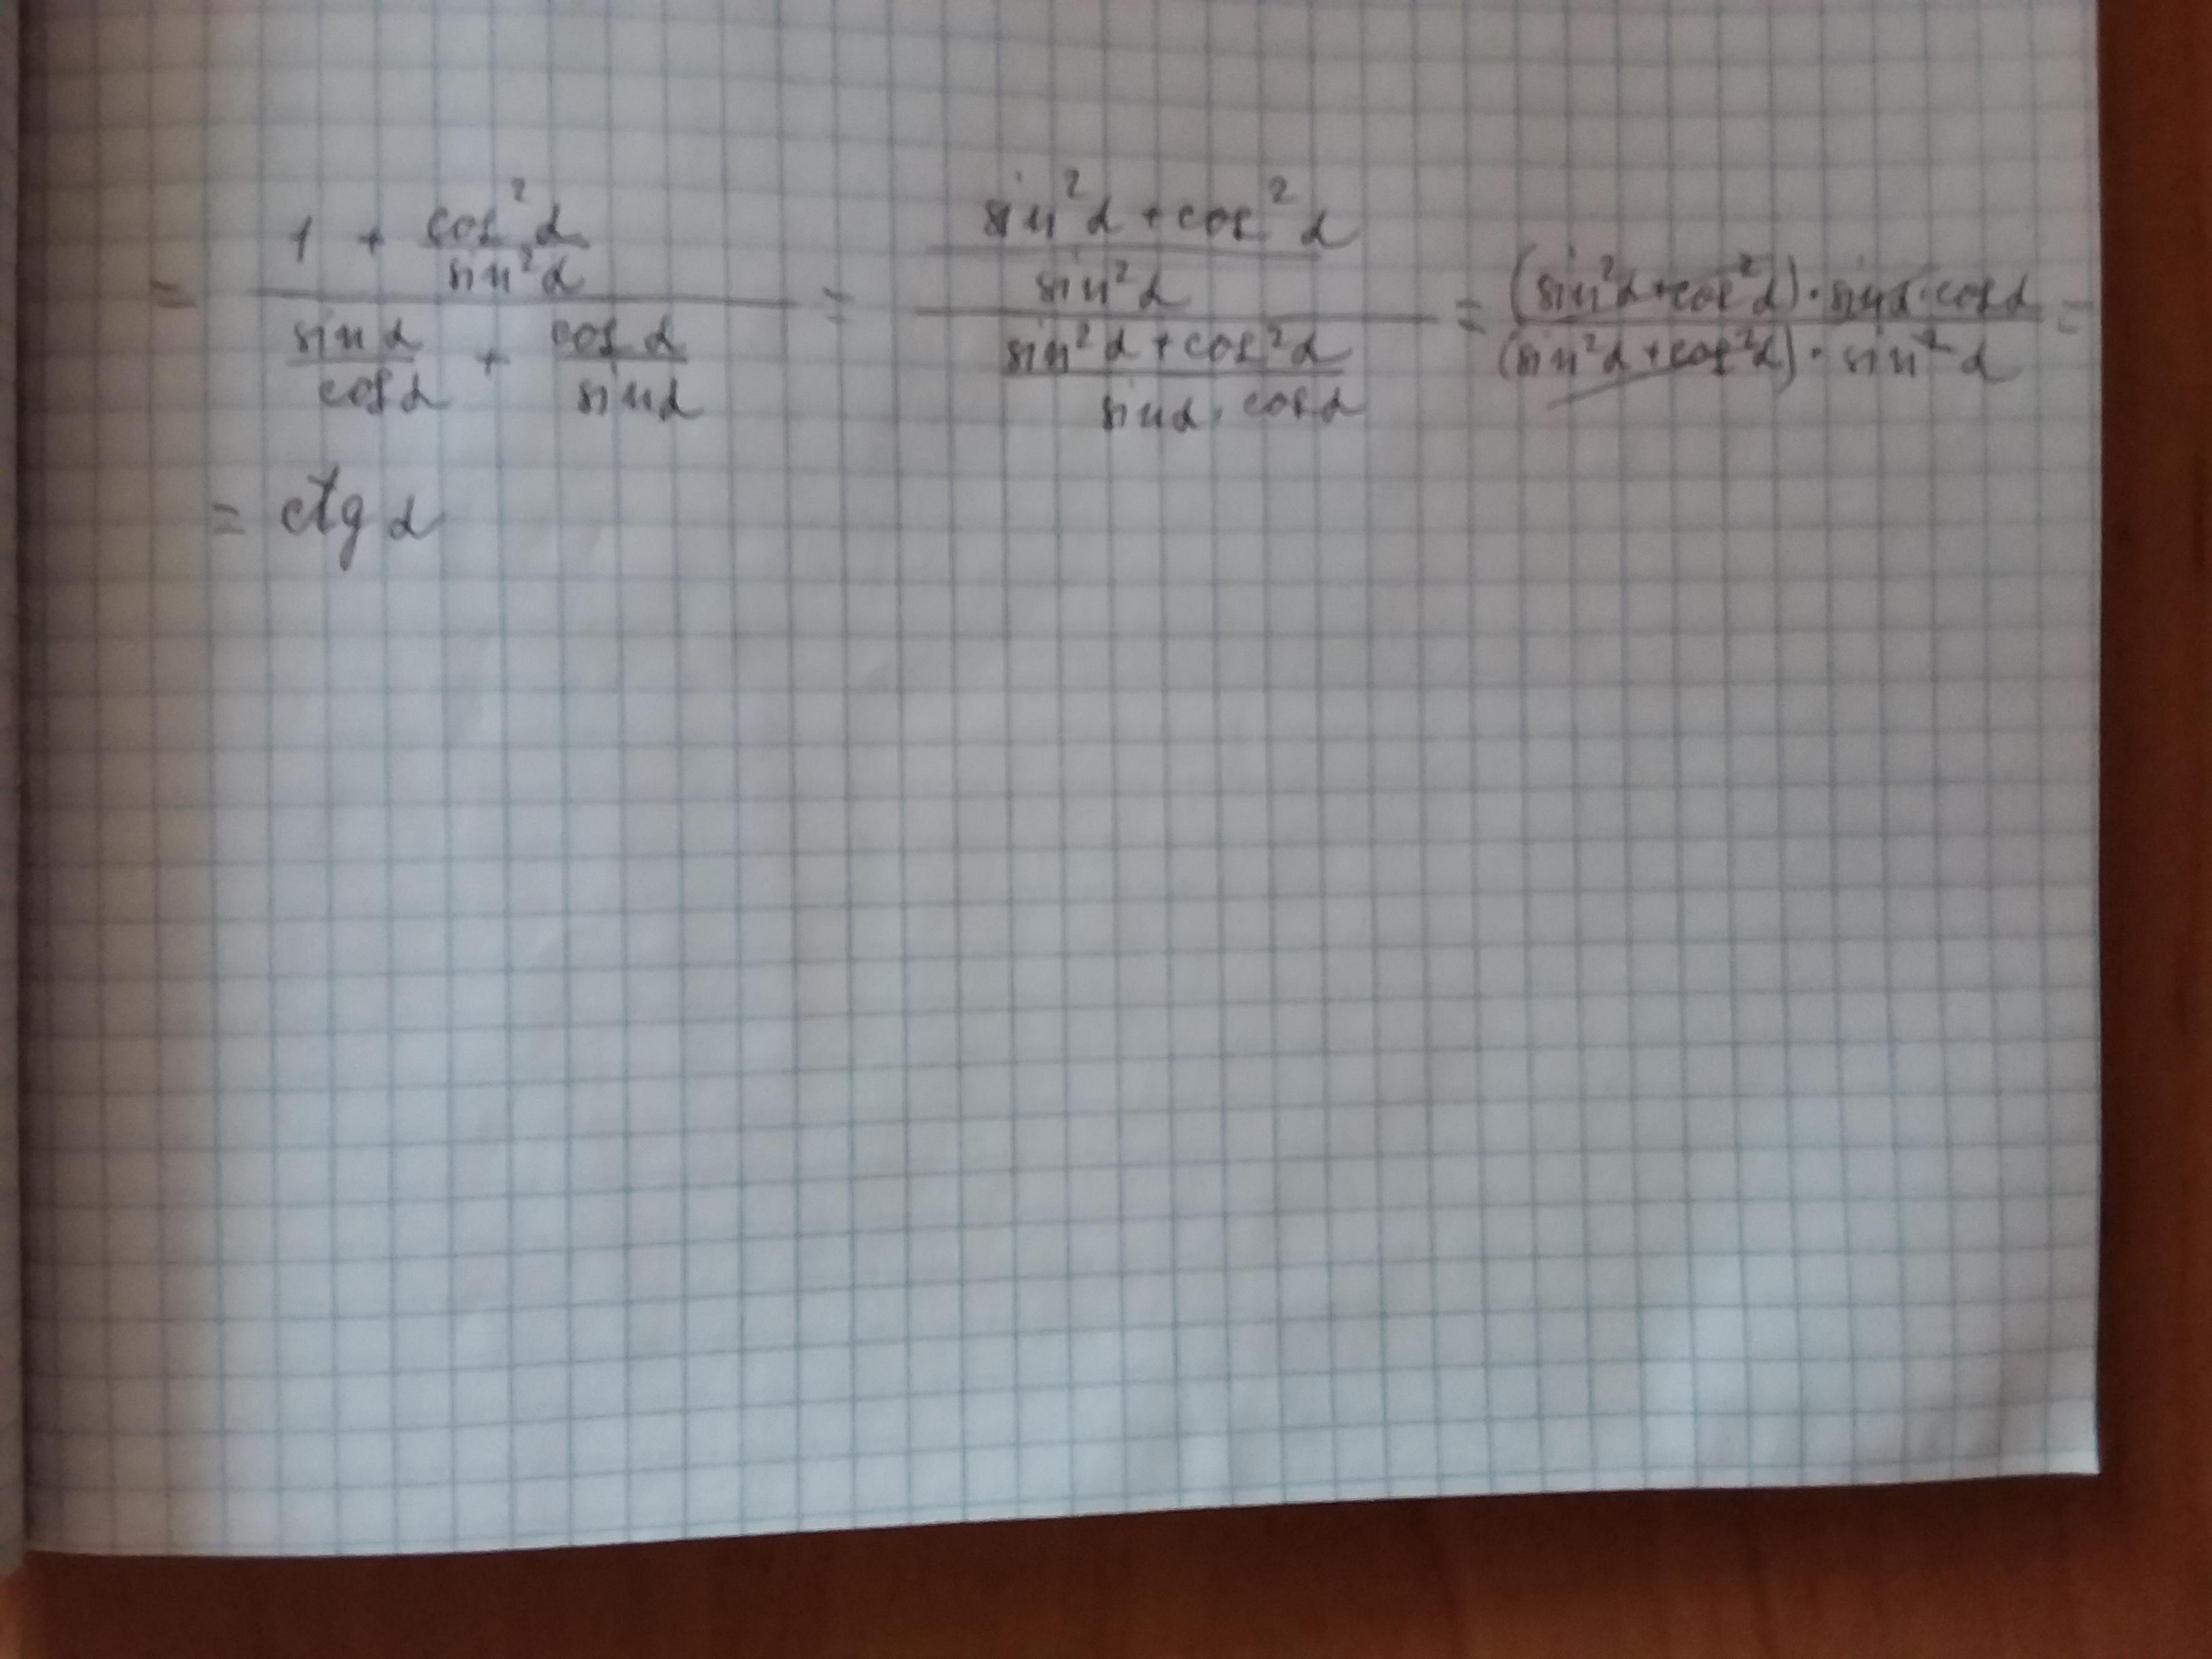 = (1 + cos²α/sin²α)/(sin α/cos α + cos α/sin α) = ((sin²α + cos²α)/sin²α)/((sin²α + cos²α)/(sin α · cos α)) = ((sin²α + cos²α) · sin α · cos α)/((sin²α + cos²α) · sin²α) =
= ctg α